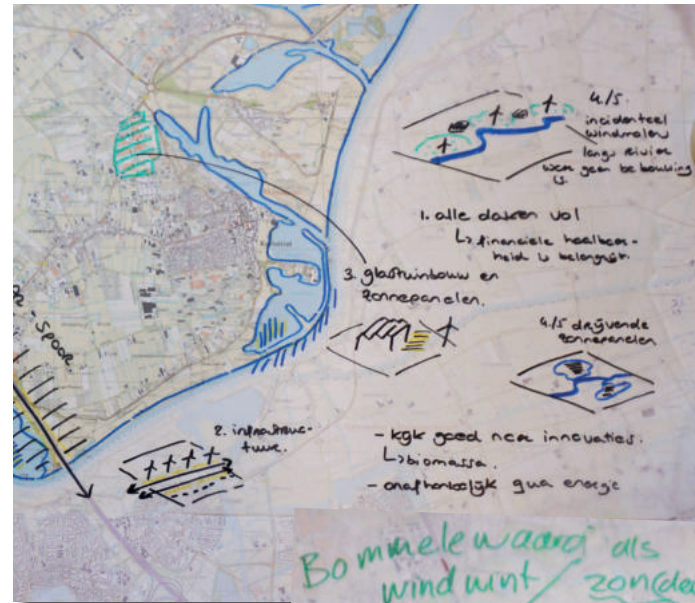 4/5.
incidenteel
windmolens
langs rivier
waar geen bebouwing
is.
1. alle daken vol
↳ financiële haalbaar-
heid is belangrijk.
3. glastuinbouw en
zonnepanelen.
4/5 drijvende
zonnepanelen
- spoor.
2. infrastruc-
tuur.
- kijk goed naar innovaties.
↳ biomassa.
- onafhankelijk qua energie
Bommelewaard als
windwint / zon